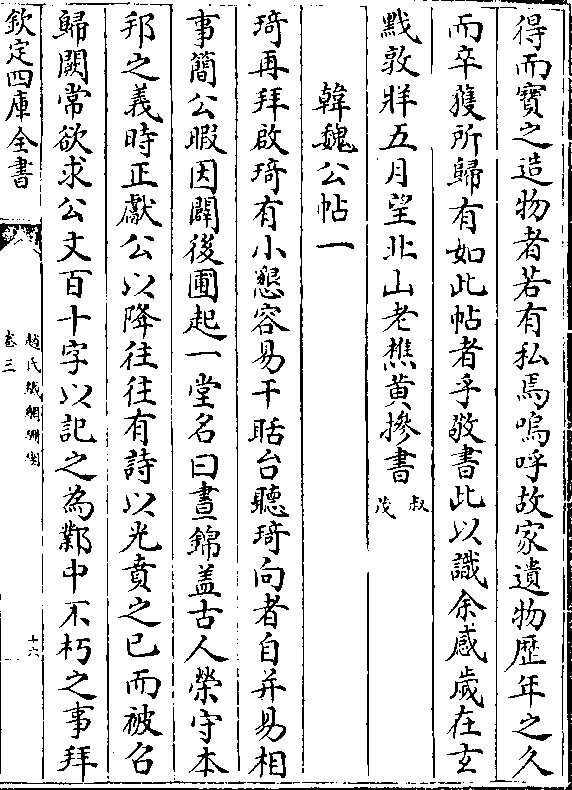 得而寳之造物者若有私焉嗚呼故家遺物歴年之久
而卒獲所歸有如此帖者乎敬書此以識余感歲在玄
黓敦牂五月望北山老樵黄摻書叔茂
韓魏公帖一
琦再拜啟琦有小懇容易干聒台聽琦向者自并易相
事簡公暇因闢後圃起一堂名曰晝錦盖古人榮守本
邦之義時正獻公以降往往有詩以光賁之已而被召
歸闕常欲求公文百十字以記之為鄴中不朽之事拜
欽定四庫全書
趙氏鐵網珊瑚
卷三
十六